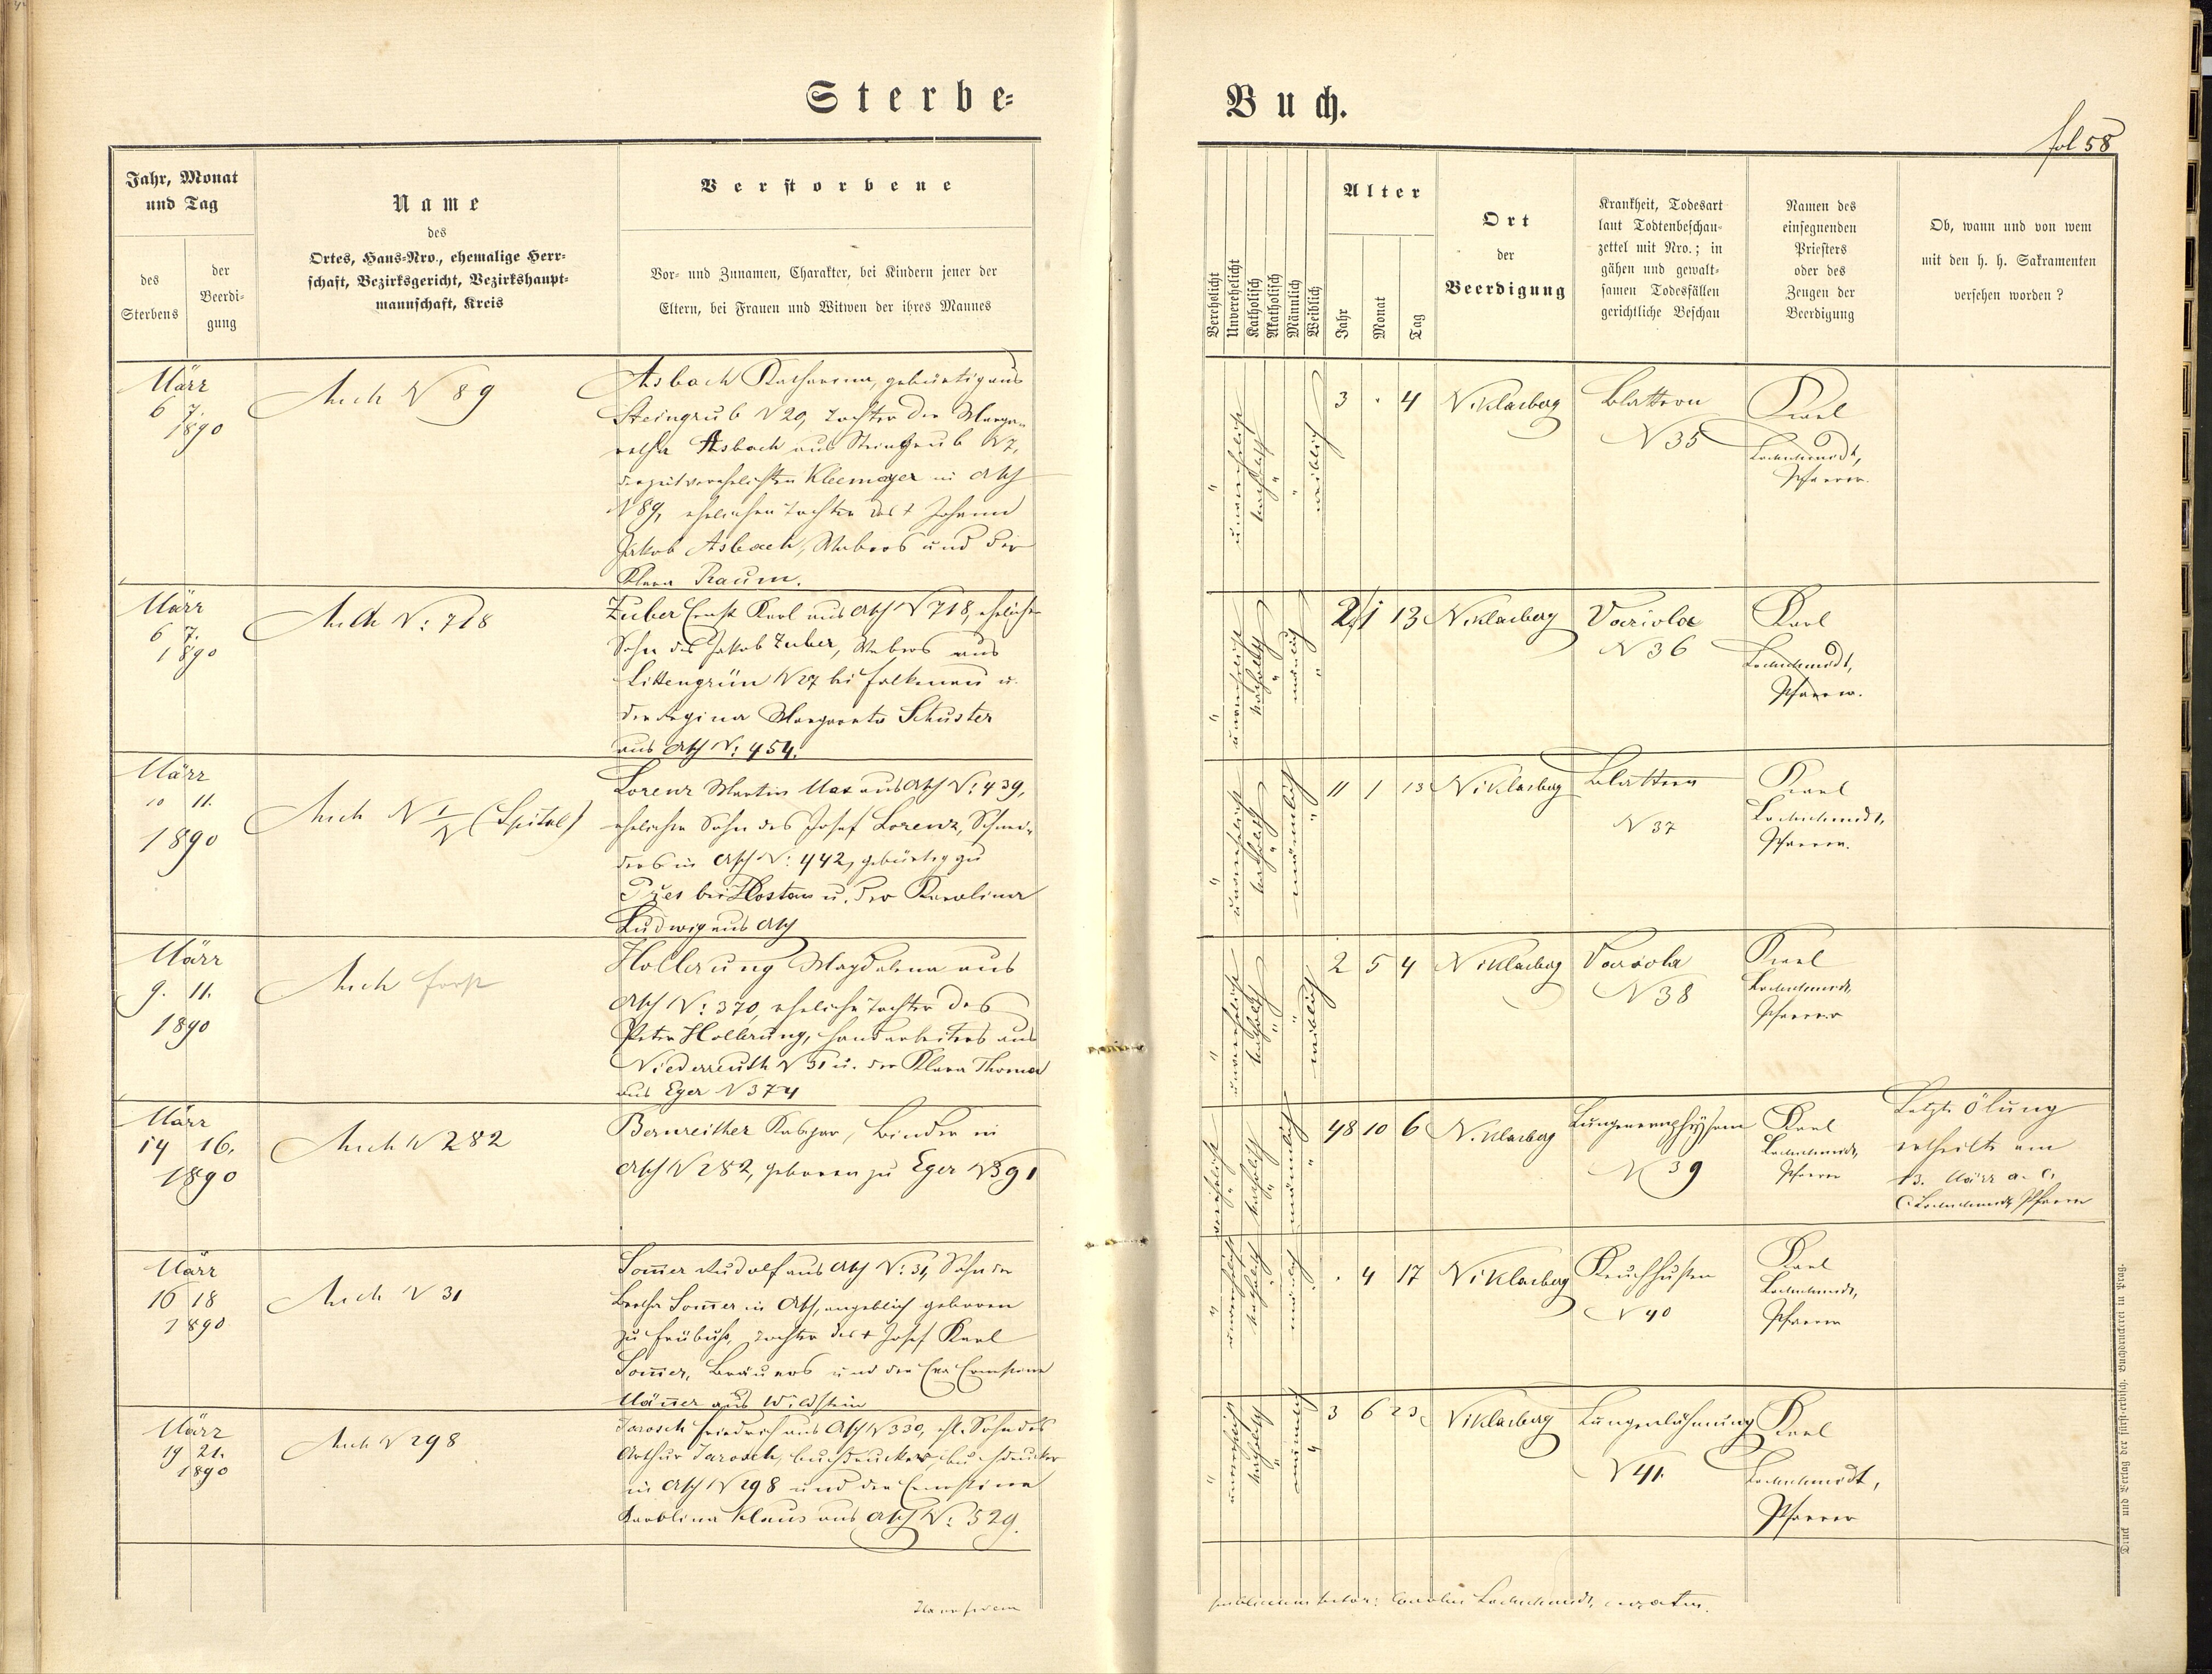 Sterbe=
Buch.
fol 58
Jahr, Monat
und Tag
des
Sterbens
der
Beerdi-
gung
Name
des
Ortes, Haus-Nro., ehemalige Herr-
schaft, Bezirksgericht, Bezirkshaupt-
mannschaft, Kreis
Verstorbene
Vor- und Zunamen, Charakter, bei Kindern jener der
Eltern, bei Frauen und Witwen der ihres Mannes
Verehelicht
Unverehelicht
Katholisch
Akatholisch
Männlich
Weiblich
Alter
Jahr
Monat
Tag
Ort
der
Beerdigung
Krankheit, Todesart
laut Todtenbeschau-
zettel mit Nro.; in
gähen und gewalt-
samen Todesfällen
gerichtliche Beschau
Namen des
einsegnenden
Priesters
oder des
Zeugen der
Beerdigung
Ob, wann und von wem
mit den h. h. Sakramenten
versehen worden?
März
6 7.
1890
Asch N 89
Asbach Katharina, gebürtig aus
Steingrub N 29, Tochter der Marga-
retha Asbach aus Steingrub N 7,
derzeit verehelichten Kleemayer in Asch
N 89, ehelichen Tochter des † Johann
Jakob Asbach, Webers und der
Klara Raum.
" unverehelicht katholisch " " weiblich
3 . 4
Niklasberg
Blattern
N 35
Karl
Lochschmidt,
Pfarrer.
März
6 7.
1890
Asch N: 718
Zuber Ernst Karl aus Asch N 718, ehelicher
Sohn des Jakob Zuber, Webers aus
Littengrün N 27 bei Falkenau u.
der Regina Margareta Schuster
aus Asch N: 454.
" unverehelicht katholisch " männlich "
2 1 13
Niklasberg
Variola
N 36
Karl
Lochschmidt,
Pfarrer.
März
10 11.
1890
Asch N I/N (Spital)
Lorenz Martin Max aus Asch N: 439,
ehelicher Sohn des Josef Lorenz, Schnei-
ders in Asch N: 442, gebürtig zu
bei Hostau u. der Karolina
Ludwig aus Asch
" unverehelicht katholisch " männlich "
11 1 13
Niklasberg
Blattern
N 37
Karl
Lochschmidt,
Pfarrer.
März
9. 11.
1890
Asch Forst
Hollerung Magdalena aus
Asch N: 370, eheliche Tochter des
Peter Hollerung, Handarbeiters aus
Niederreuth N 31 u. der Klara Thoma
aus Eger N 374
" unverehelicht katholisch " " weiblich
2 5 4
Niklasberg
Variola
N 38
Karl
Lochschmidt,
Pfarrer
März
14 16.
1890
Asch N 282
Bernreither Kaspar, Binder in
Asch N 282, geboren zu Eger N 391
verehelicht " katholisch " männlich "
48 10 6
Niklasberg
Lungenemphysem
N 39
Karl
Lochschmidt,
Pfarrer
Letzte Ölung
ertheilte am
13. März a. c.
C. Lochschmidt, Pfarrer
März
16 18
1890
Asch N 31
Som̅er Rudolf aus Asch N: 31, Sohn der
Bertha Som̅er in Asch, angeblich geboren
zu Frübuß, Tochter des † Josef Karl
Som̅er, Bräuers und der Eva Ernestine
aus Wildstein
" unverehelicht katholisch " männlich "
. 4 17
Niklasberg
Keuchhusten
N 40
Karl
Lochschmidt,
Pfarrer
März
19 21.
1890
Asch N 298
Jarosch Friedrich aus Asch N 330, ehl. Sohn des
Arthur Jarosch, Buchdruckers, Buchdrucker
in Asch N 298 und der Ernestine
Karolina Klaus aus Asch N: 529.
" unverehelicht katholisch " männlich "
3 6 23
Niklasberg
Lungenlähmung
N 41.
Karl
Lochschmidt,
Pfarrer
Carolus Lochschmidt, curatus.
Druck und Verlag der fürst-erzbisch. Buchdruckerei in Prag.